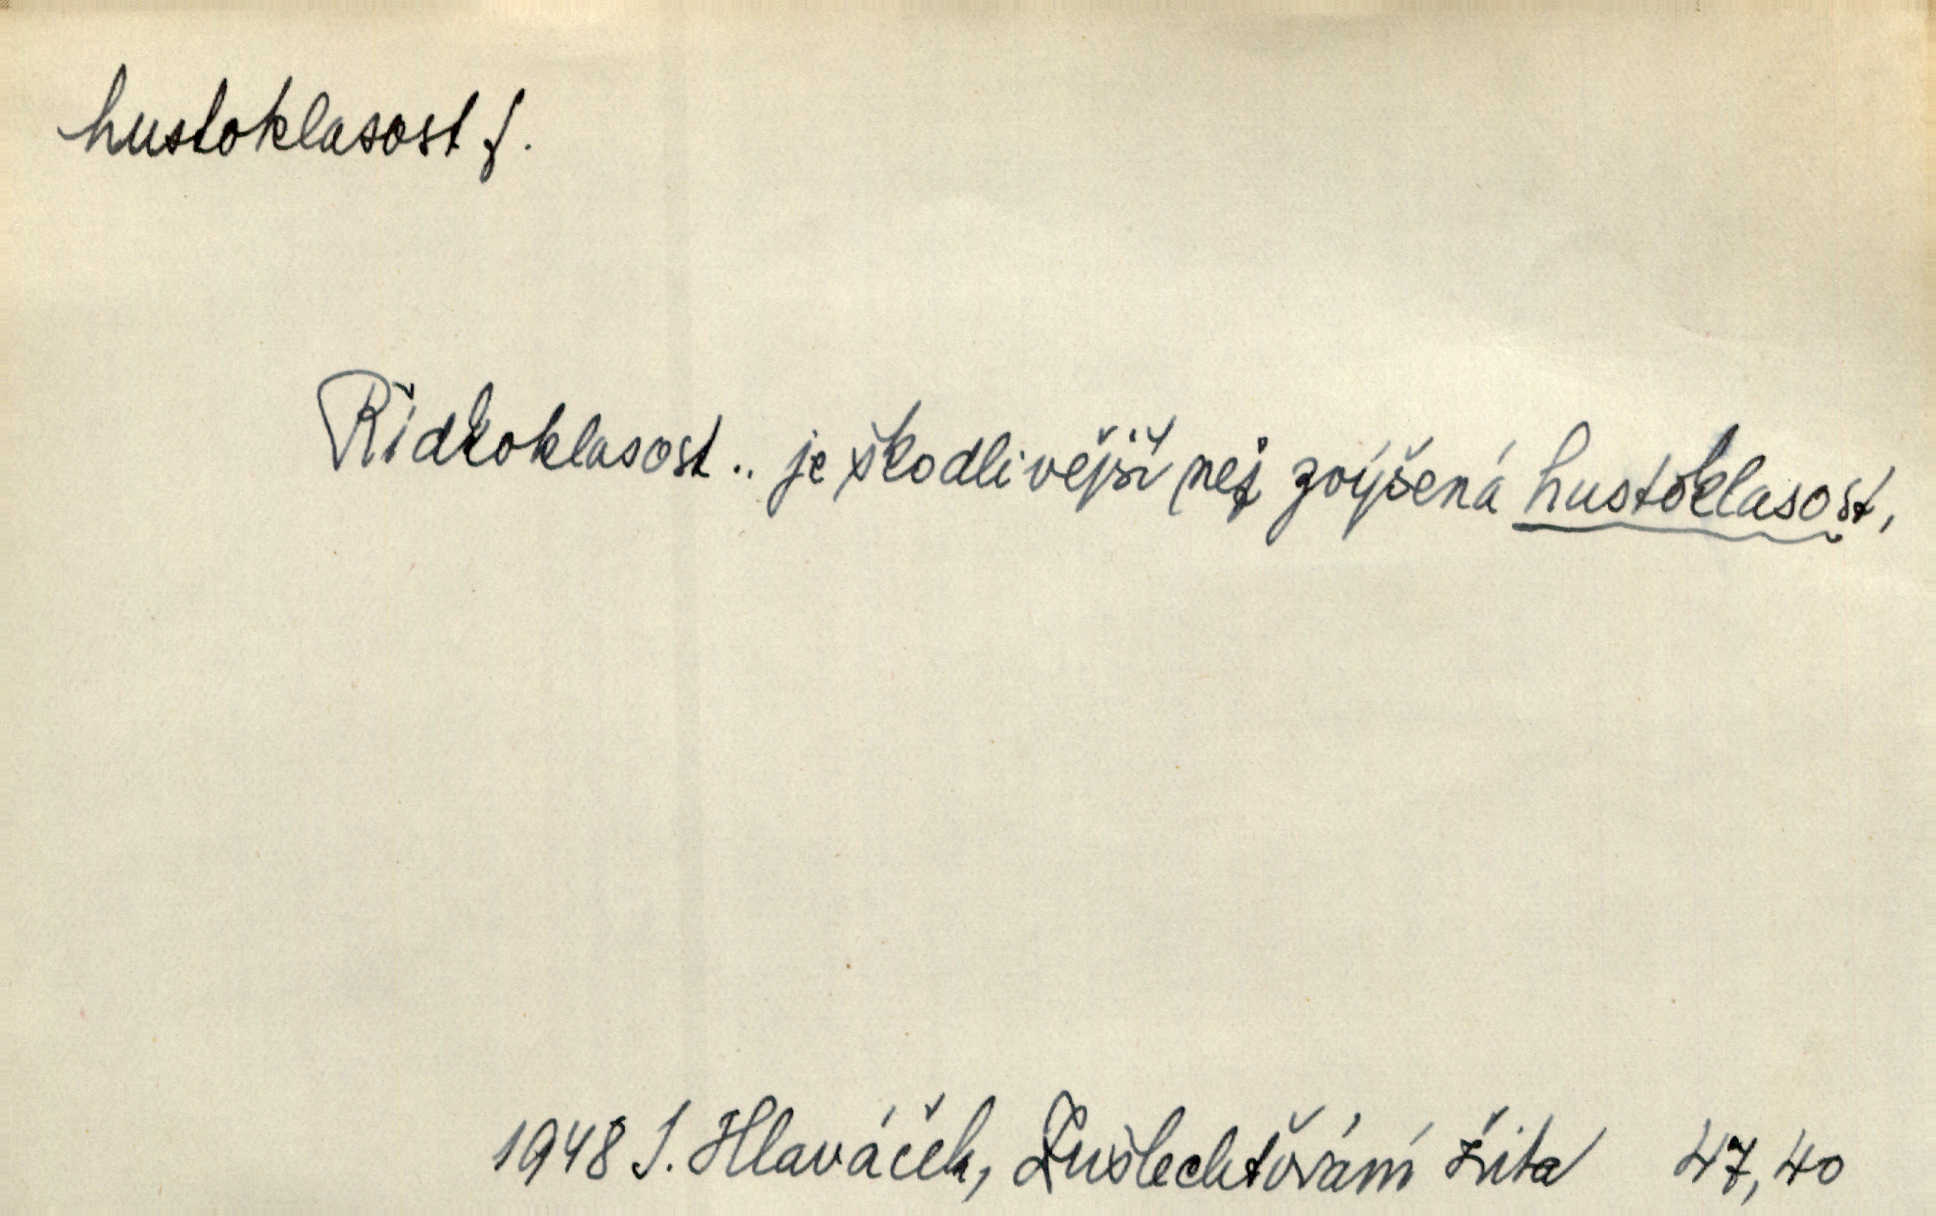 hustoklasost f.
Řídkoklasost .. je škodlivější než zvýšená hustoklasost,
1948 J. Hlaváček, Zušlechťování žita 47,40